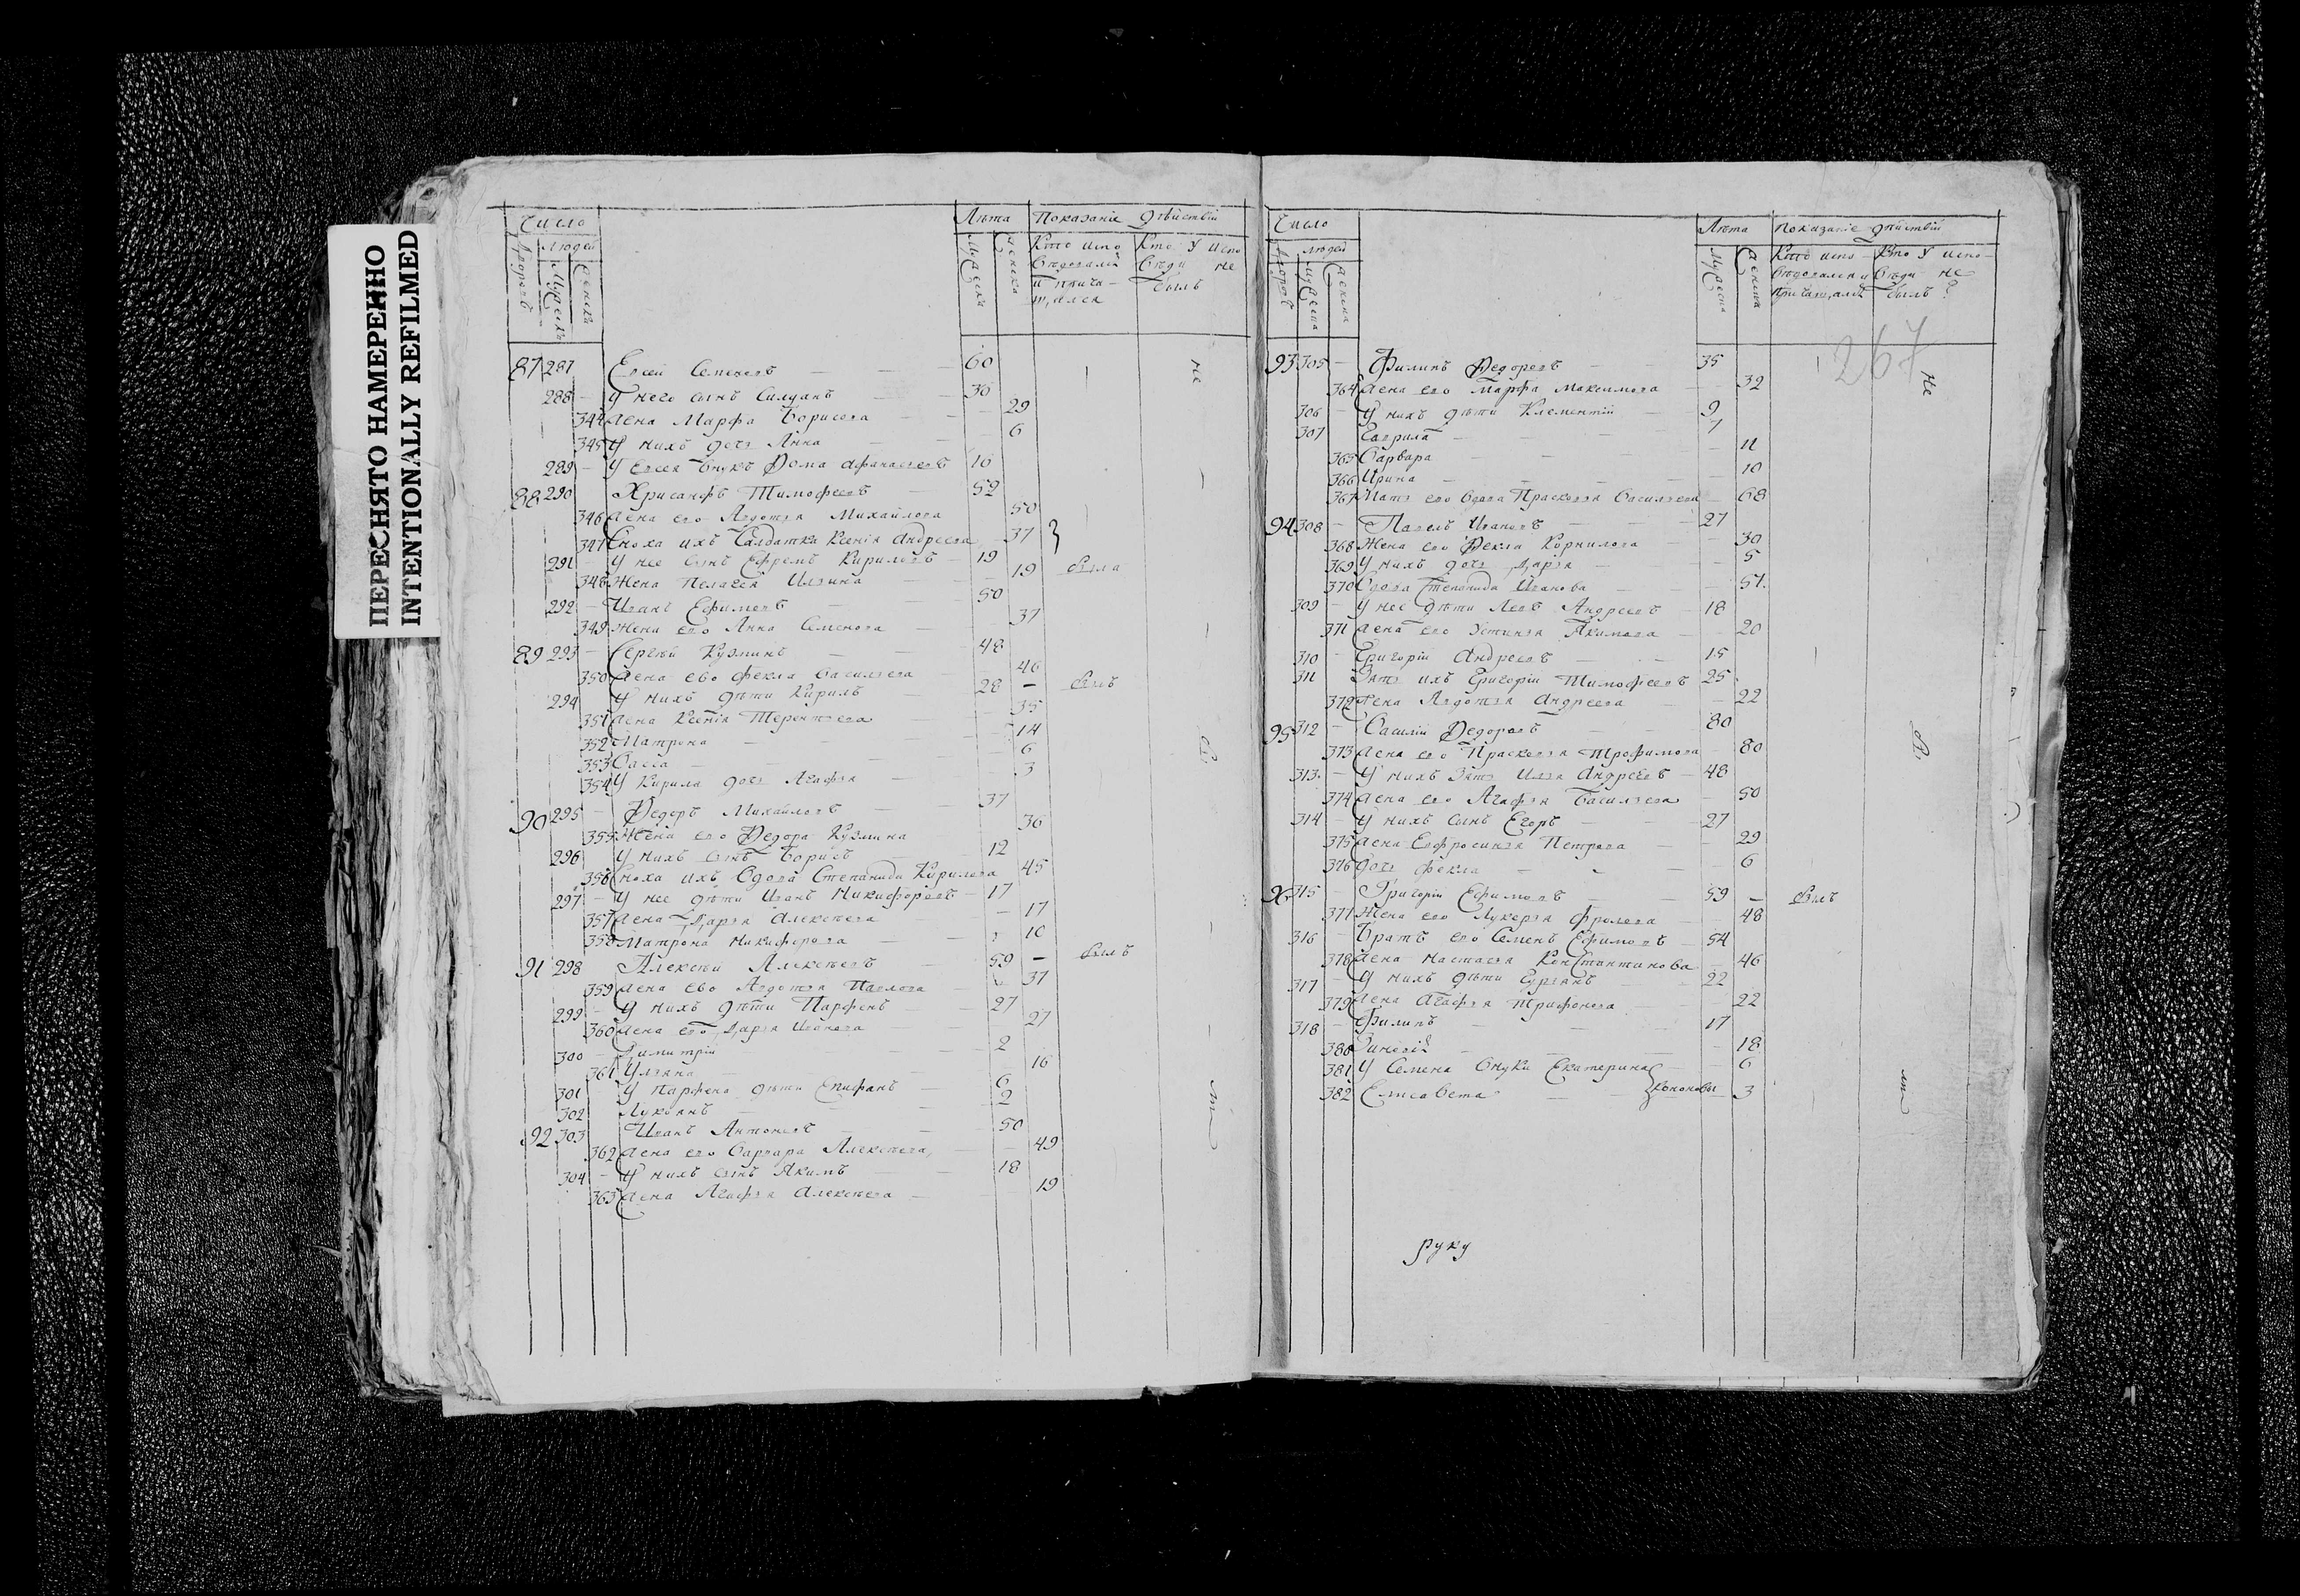 ПЕРЕСНЯТО НАМЕРЕННО
INTENTIONALLY REFILMED
Число
Людей
Дворовъ
Мужеска
Женска
Лѣта
Мужеска
Женска
Показаніе дѣйствій
Кто испо
вѣдовались
и прича-
щался
Кто у испо
вѣди не
былъ
87 287 Евсей Семеновъ — 60 не
288 — У него сынъ Силуанъ — 30
344 Жена Марфа Борисова — 29
345 У нихъ дочь Анна — 6
289 — У Евсея внукъ Фома Афанасьевъ 10
88 290 Хрисанфъ Тимофеевъ — 52
346 Жена его Авдотья Михайлова 50
347 Сноха ихъ Салдатка Ксенія Андреева 37 }
291 — У нее сынъ Ефремъ Кириловъ — 19
348 Жена Пелагея Ильина — 19 была
292 — Иванъ Ефимовъ — 50
349 Жена его Анна Семенова — 37
89 293 — Сергѣй Кузминъ — 48
350 Жена ево Фекла Васильева — 46
294 У нихъ дѣти Кирилъ — 28 — былъ
351 Жена Ксенія Терентьева — 35
352 Матрона — 14
353 Васса — 6
354 У Кирила дочь Агафья — 3
90 295 — Федоръ Михайловъ — 37
355 Жена его Федора Кузмина — 36
296 У нихъ сынъ Борисъ — 12
356 Сноха ихъ Вдова Степанида Кирилова 45
297 — У нее дѣти Иванъ Никифоровъ — 17
357 Жена Дарья Алексѣева — 17
358 Матрона Никифорова — 10
91 298 Алексѣй Алексѣевъ — 59 — былъ
359 Жена ево Авдотья Павлова — 37
299 — У нихъ дѣти Парфенъ — 27
360 Жена его Дарья Иванова 27
300 — Димитрій — 2
361 Ульяна — 16
301 У Парфена дѣти Епифанъ — 6
302 Лукьянъ — 2
92 303 Иванъ Антоновъ — 50
362 Жена его Варвара Алексѣева — 49
304 — У нихъ сынъ Якимъ — 18
363 Жена Агафья Алексѣева — 19
Число
Людей
Дворовъ
Мужеска
Женска
Лѣта
Мужеска
Женска
Показаніе дѣйствій
Кто испо-
вѣдовались и
причащались
Кто у испо-
вѣди не
былъ
267
93 305 — Филипъ Федоровъ — 35 не
364 Жена его Марфа Максимова — 32
306 — У нихъ дѣти Климентій — 9
307 Гаврила —
365 Варвара — 11
366 Ирина — 10
367 Мать его вдова Прасковья Васильева — 68
94 308 — Павелъ Ивановъ — 27
368 Жена его Фекла Корнилова — 30
369 У нихъ дочь Дарья — 5
370 Вдова Степанида Иванова — 51
309 — У нее дѣти Левъ Андреевъ — 18
371 Жена его Устинья Якимова — 20
310 — Григорій Андреевъ — 15
311 Зять ихъ Григорій Тимофеевъ 25
372 Жена Авдотья Андреева — 22
95 312 — Василій Федоровъ — 80
373 Жена его Прасковья Трофимова — 80
313 — У нихъ Зять Илья Андреевъ — 48
374 Жена его Агафья Васильева — 50
314 — У нихъ сынъ Егоръ — 27
375 Жена Евфросинья Петрова — 29
376 Дочь Фекла — 6
96 315 — Григорій Ефимовъ — 59 — былъ
377 Жена его Лукерья Фролова — 48
316 — Братъ его Семенъ Ефимовъ — 54
378 Жена Настасья Константинова — 46
317 — У нихъ дѣти Гурьянъ — 22
379 Жена Агафья Трифонова — 22
318 — Филипъ — 17
380 — 18
381 У Семена внуки Екатерина — 6
382 Елисавета — } Кононовы 3
руку